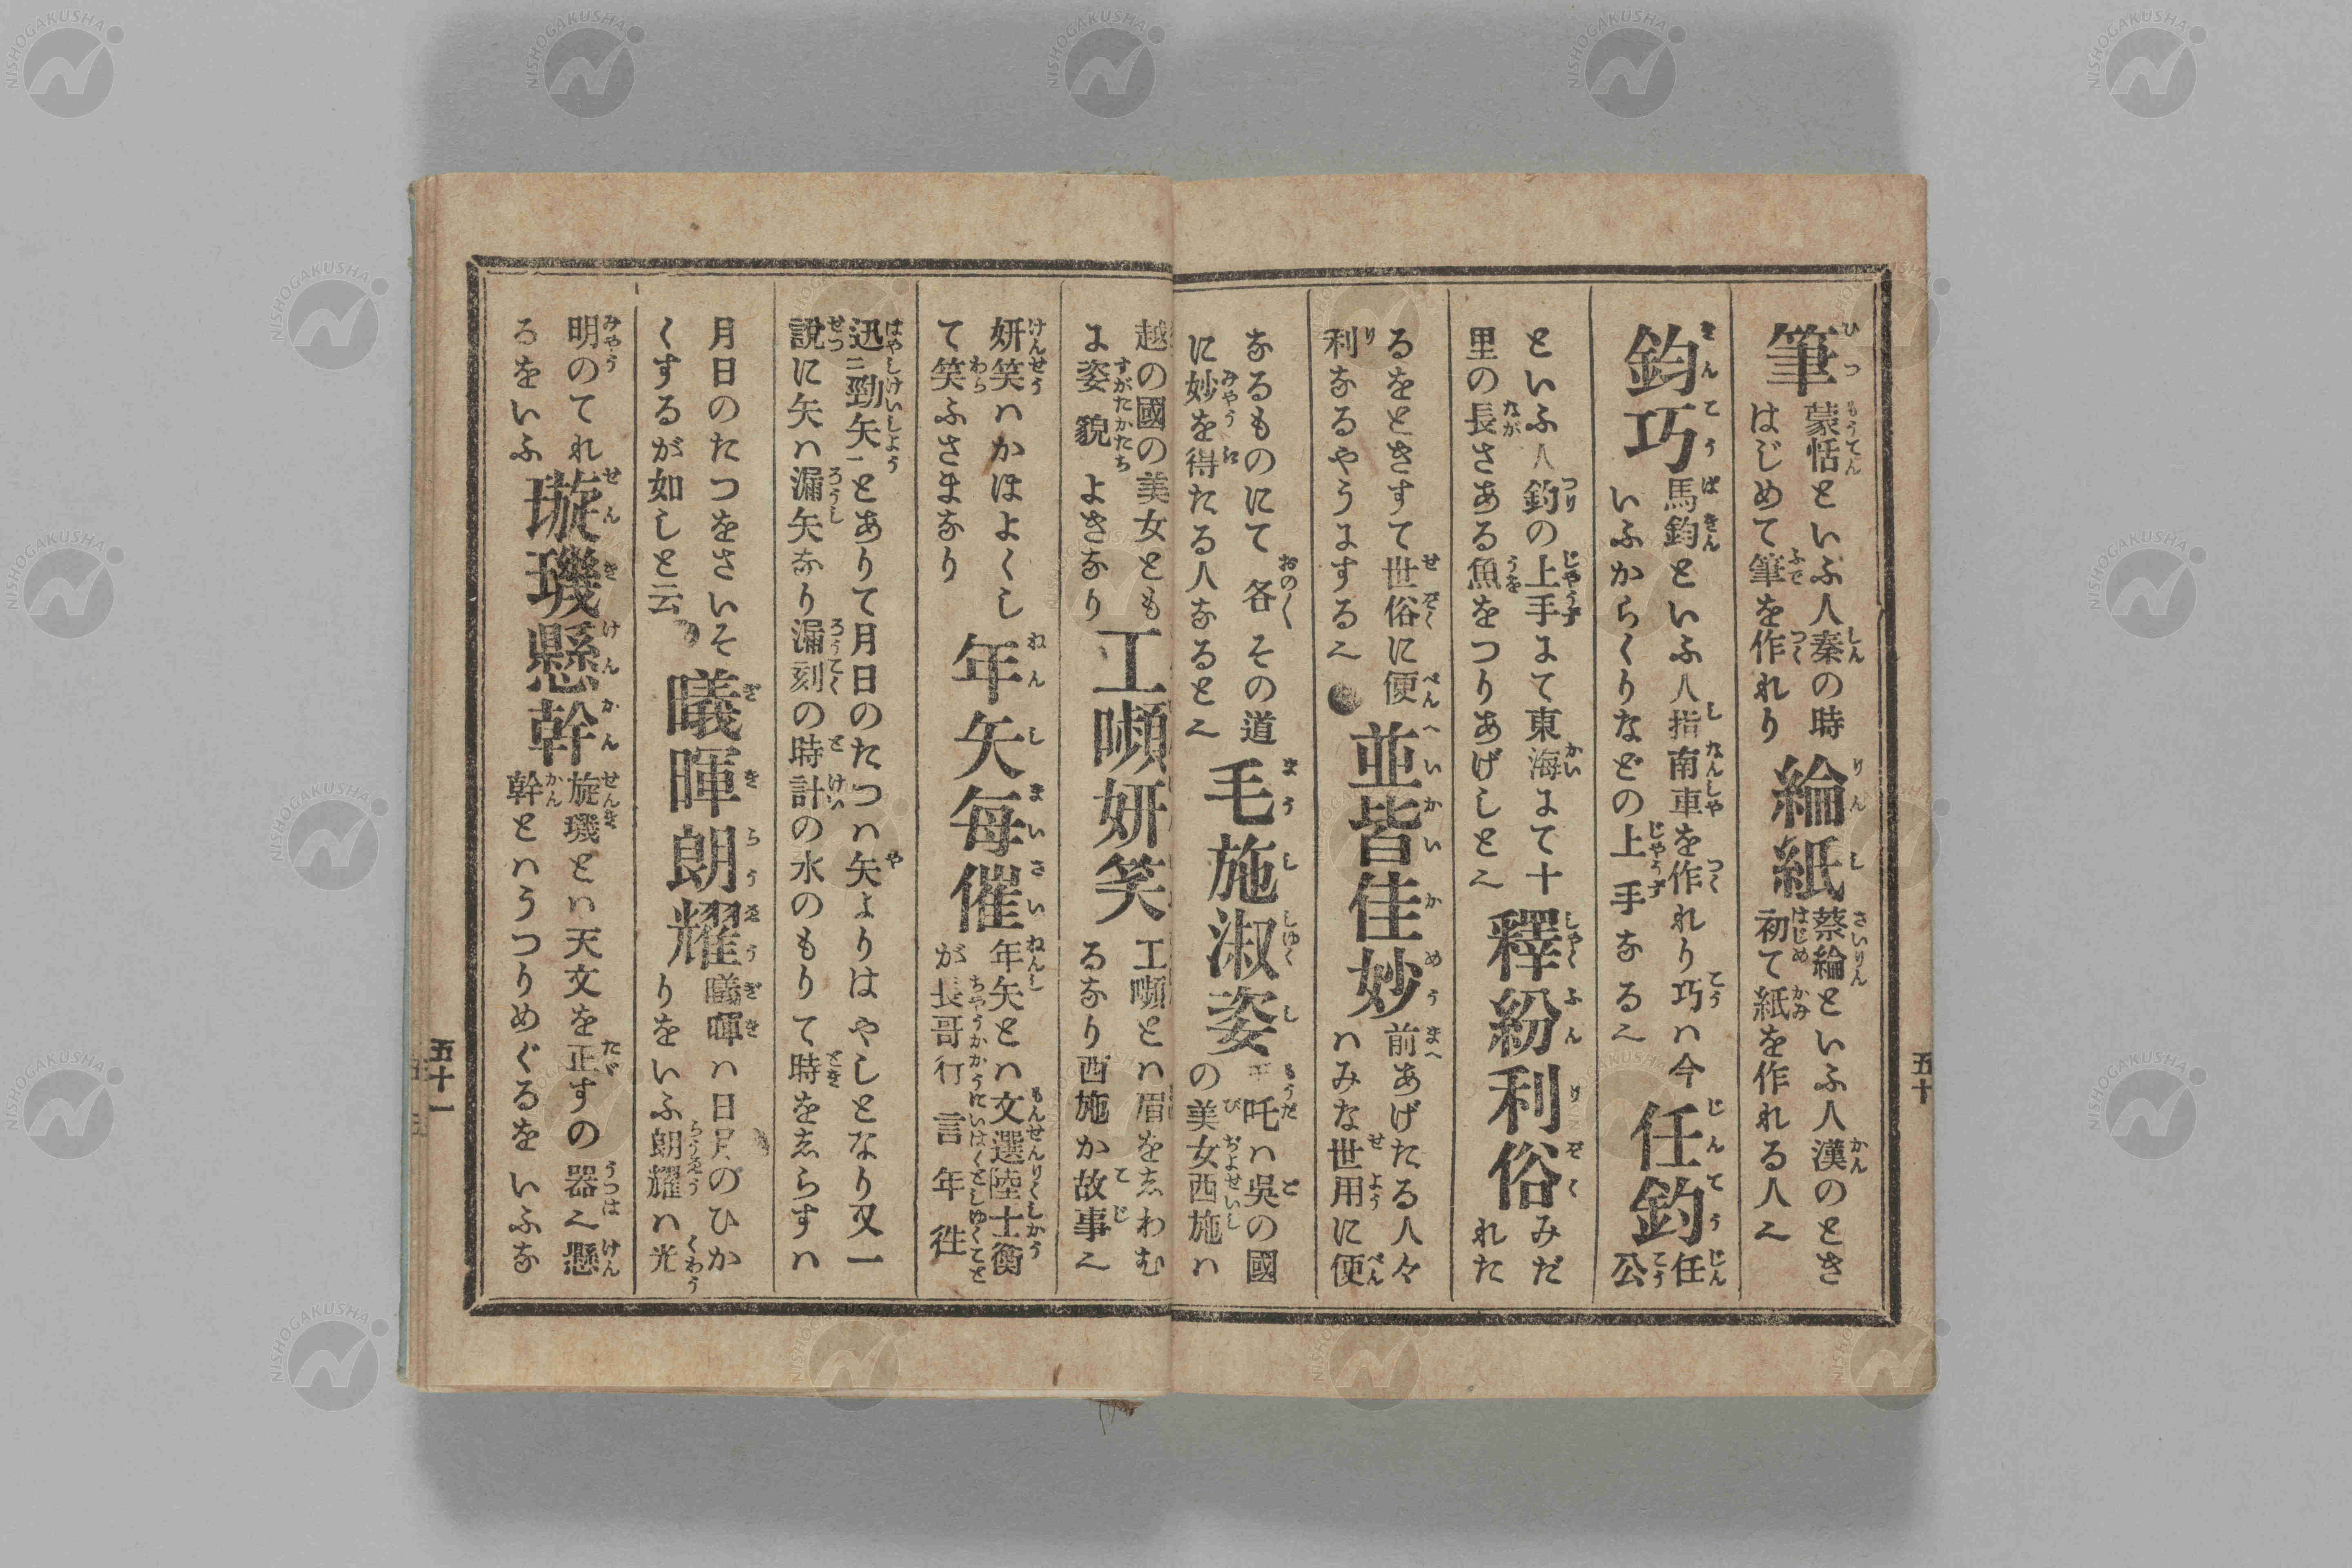 筆
蒙恬といふ人秦の時
はじめて筆を作れり
綸紙
蔡綸といふ人漢のとき
初て紙を作れる人〻
鈞巧
馬鈞といふ人指南車を作れり巧ハ今
いふからくりなどの上手なる〻
任釣
任
公
といふ人釣の上手まて東海まて十
里の長さある魚をつりあげしと〻
釋紛利俗
みだ
れた
るをときすて世俗に便
利なるやうまする〻
並皆佳妙
前あげたる人々
ハみな世用に便
なるものにて各その道
に妙を得たる人なると〻
毛施淑姿
吒ハ吳の國
の美女西施ハ
越の國の美女とも
ま姿貌よきなり
工嚬妍笑
工嚬とハ眉を志わむ
るなり西施か故事〻
妍笑ハかほよくし
て笑ふさまなり
年矢每催
年矢とハ文選陸士衡
が長哥行言年徃
迅二勁矢一とありて月日のたつハ矢よりはやしとなり又一
說に矢ハ漏矢なり漏刻の時計の水のもりて時を志らすハ
月日のたつをさいそ
くするが如しと云
曦暉朗耀
曦暉ハ日月のひか
りをいふ朗耀ハ光
明のてれ
るをいふ
璇璣懸斡
旋璣とハ天文を正すの器〻懸
斡とハうつりめぐるをいふな
五十
五十一
NISHOGAKUSHA